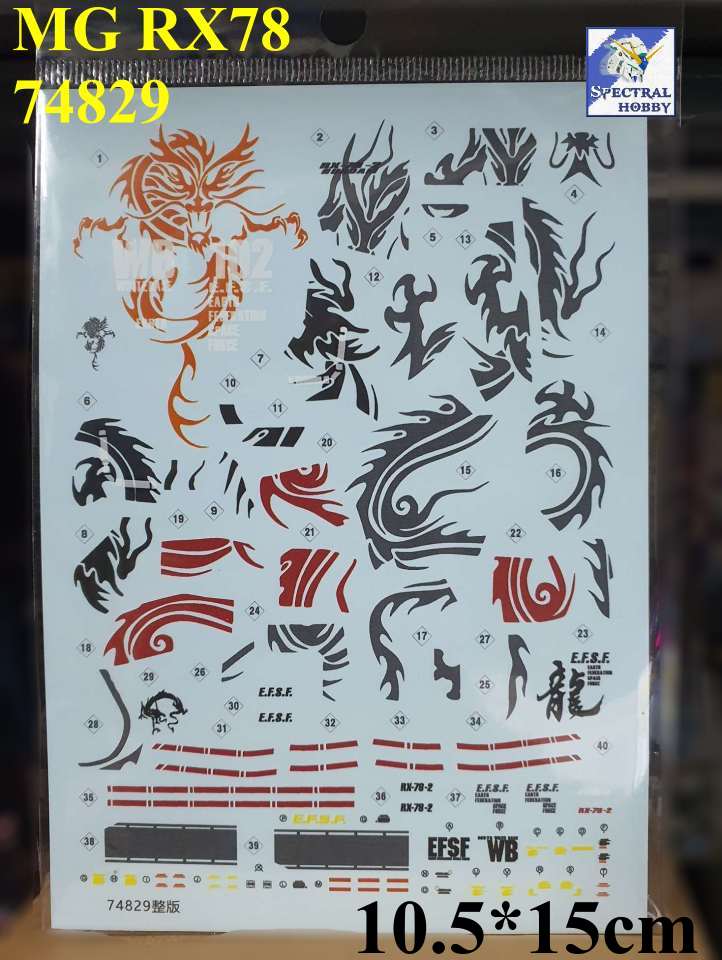 MG RX78
74829
SPECTRAL
HOBBY
1
2
3
4
RX-78-2
5
13
WB 102
E.F.S.F.
EARTH
FEDERATION
SPACE
FORCE
12
14
7
10
11
6
20
15
16
8
19
9
21
22
18
24
17
27
23
29
26
25
E.F.S.F.
EARTH
FEDERATION
SPACE
FORCE
龍
28
30
E.F.S.F.
31
E.F.S.F.
32
33
34
40
35
36
RX-78-2
RX-78-2
37
E.F.S.F.
EARTH
FEDERATION
SPACE
FORCE
E.F.S.F.
EARTH
FEDERATION
SPACE
FORCE
RX-78-2
E.F.S.F.
38
39
EFSF
WB
74829整版
10.5*15cm